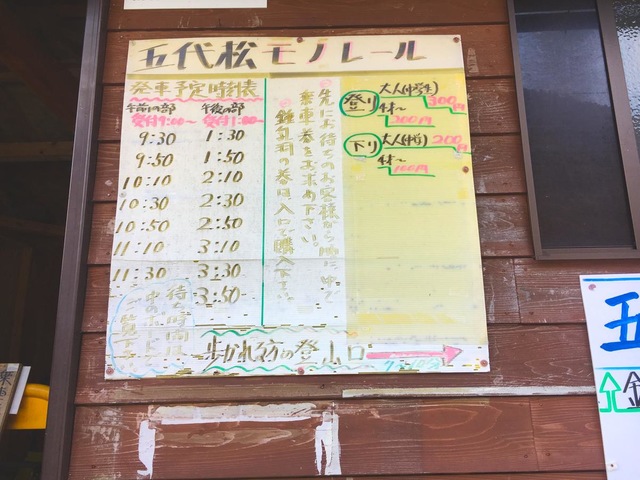 五代松モノレール
発車予定時刻表
午前の部 午後の部
受付9:00～ 受付1:00～
9:30 1:30
9:50 1:50
10:10 2:10
10:30 2:30
10:50 2:50
11:10 3:10
11:30 3:30
3:50
先にお待ちのお客様から順に中で
乗車券をお求め下さい。
鍾乳洞の券は入口で購入下さい
登り 大人(中学生) 300円
200円
下り 大人 200円
100円
待ち時間は
ご覧下さい
歩かれる方の登山口
五